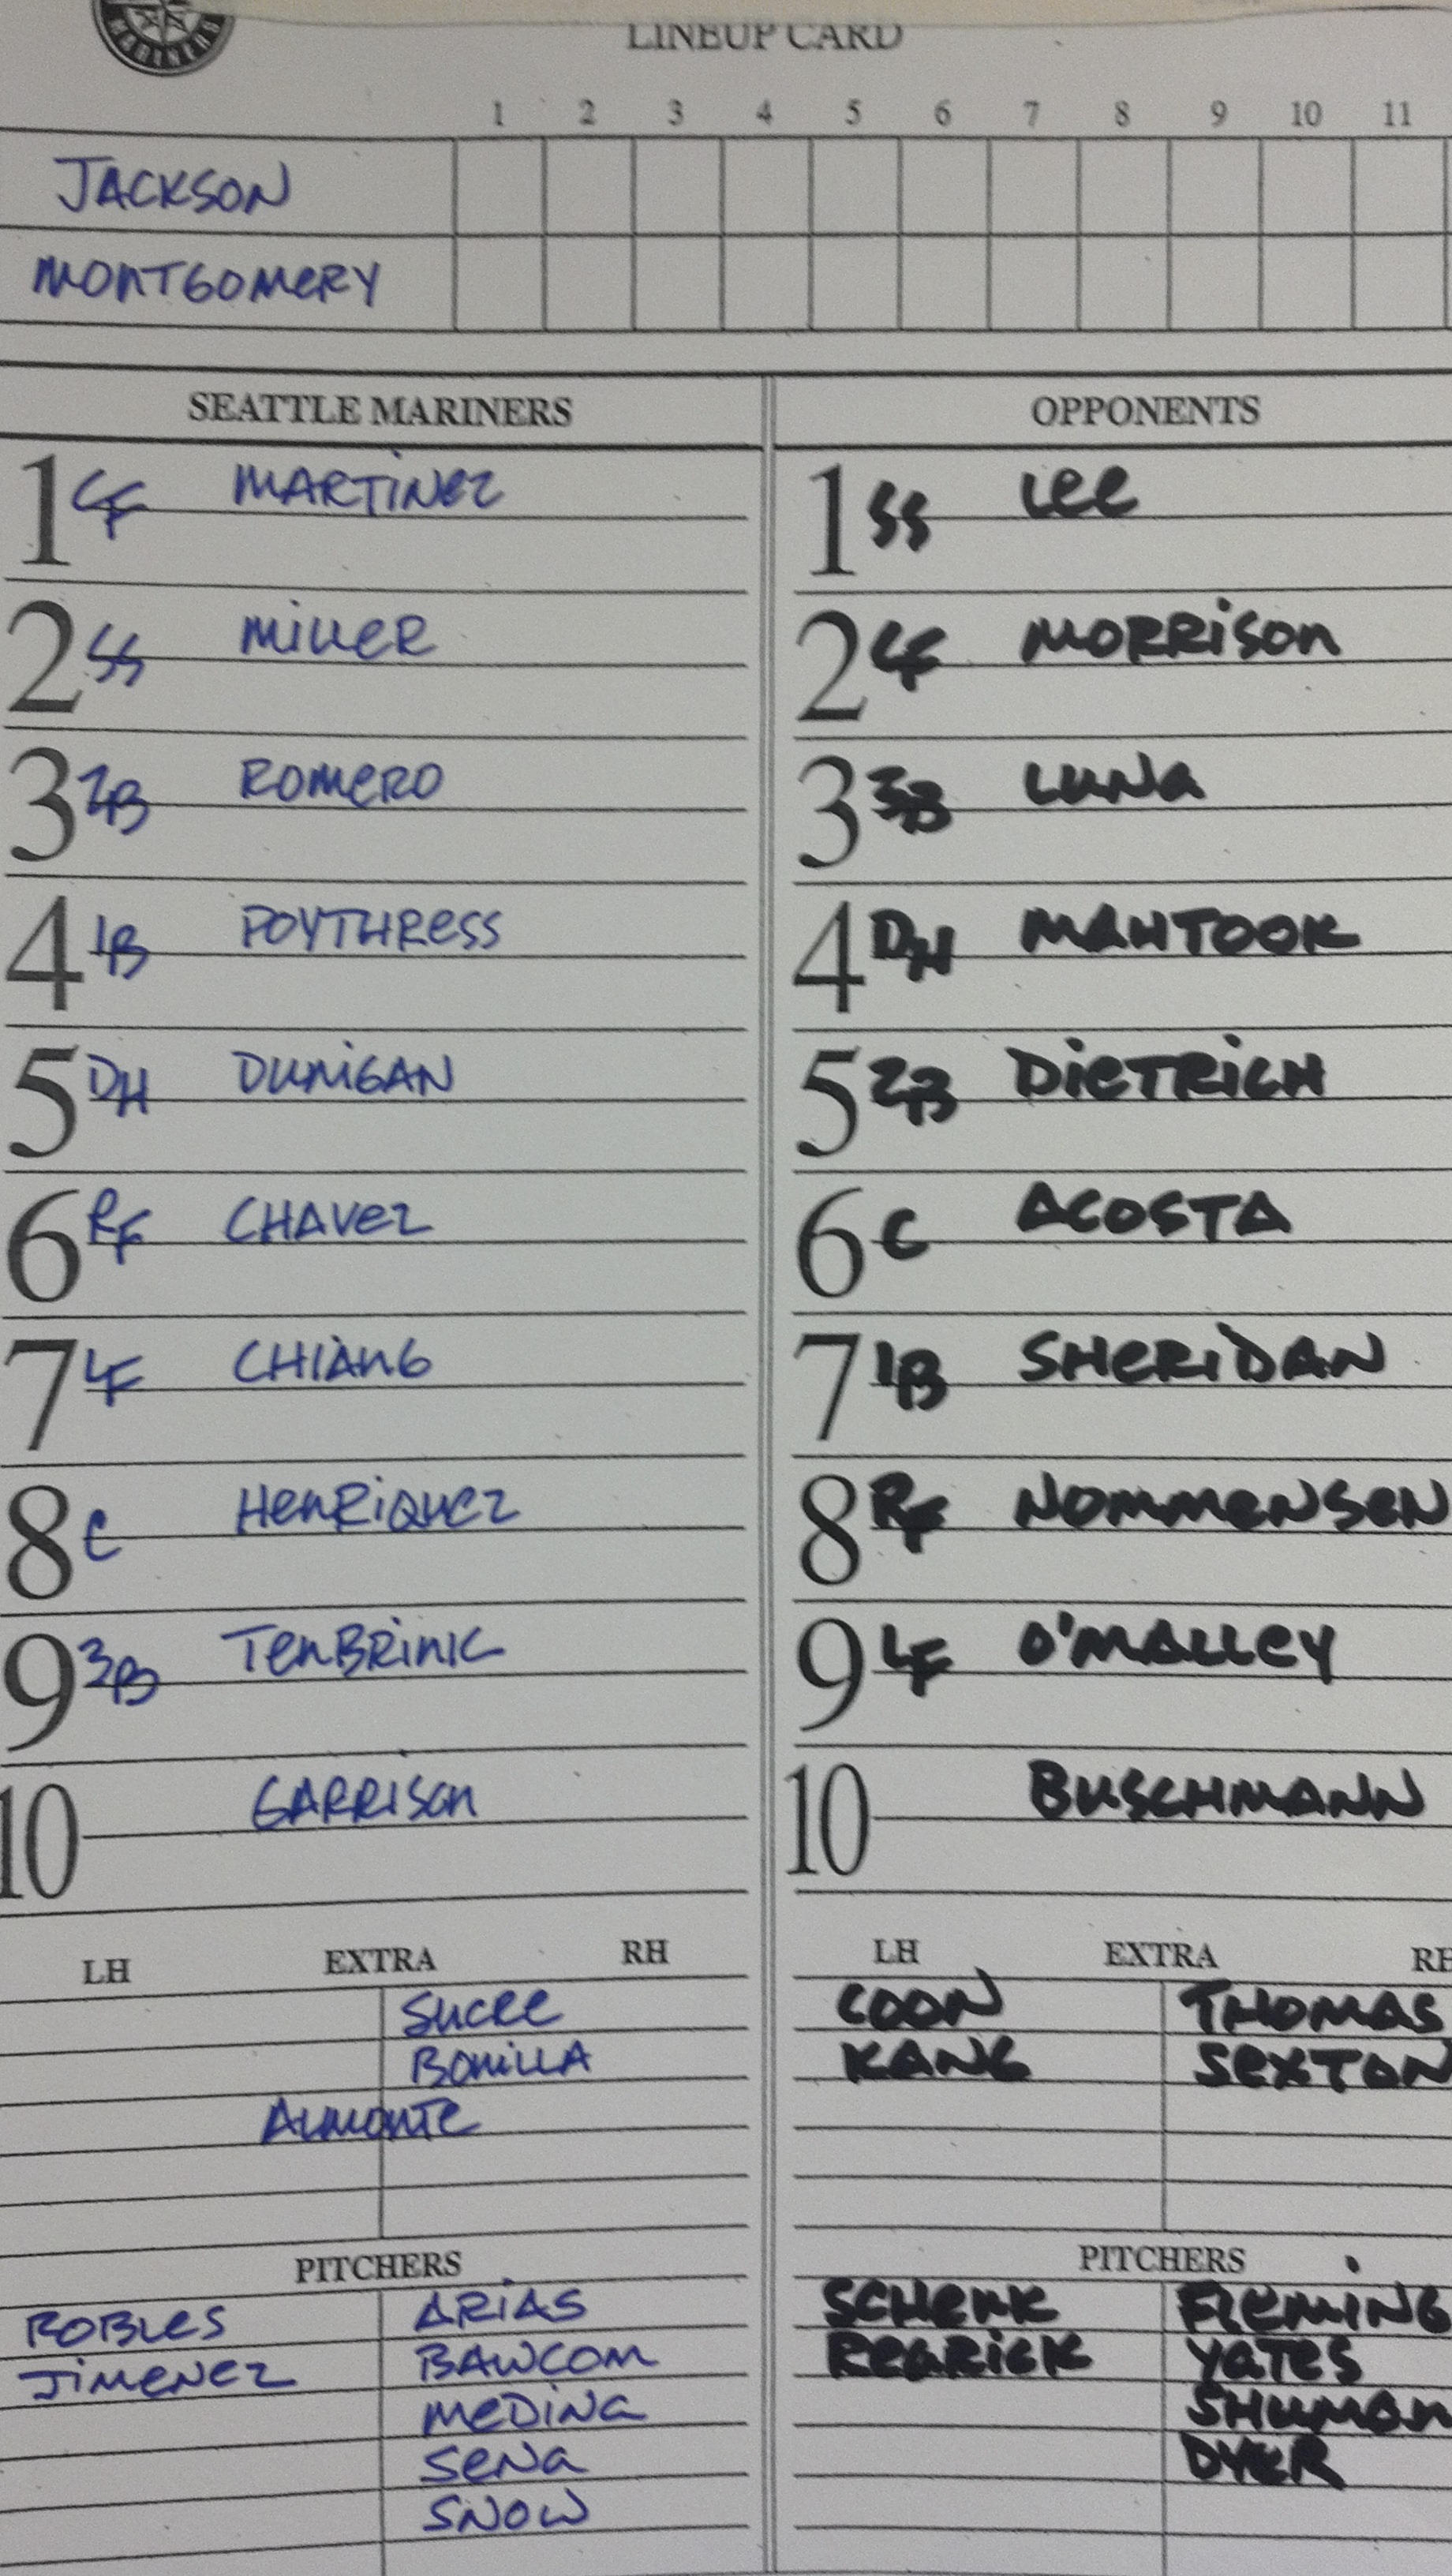 MARINERS
LINEUP CARD
1 2 3 4 5 6 7 8 9 10 11
JACKSON
MONTGOMERY
SEATTLE MARINERS
1 CF MARTINEZ
2 SS MILLER
3 2B ROMERO
4 1B POYTHRESS
5 DH DUNIGAN
6 RF CHAVEZ
7 LF CHIANG
8 C HENRIQUEZ
9 3B TENBRINK
10 GARRISON
LH EXTRA RH
SUCRE
BONILLA
ALMONTE
PITCHERS
ROBLES ARIAS
JIMENEZ BAWCOM
MEDINA
SENA
SNOW
OPPONENTS
1 SS LEE
2 CF MORRISON
3 3B LUNA
4 DH MAHTOOK
5 2B DIETRICH
6 C ACOSTA
7 1B SHERIDAN
8 RF NOMMENSEN
9 LF O'MALLEY
10 BUSCHMANN
LH EXTRA RH
COON THOMAS
KANG SEXTON
PITCHERS
SCHENK FLEMING
REARICK YATES
SHUMAN
DYER